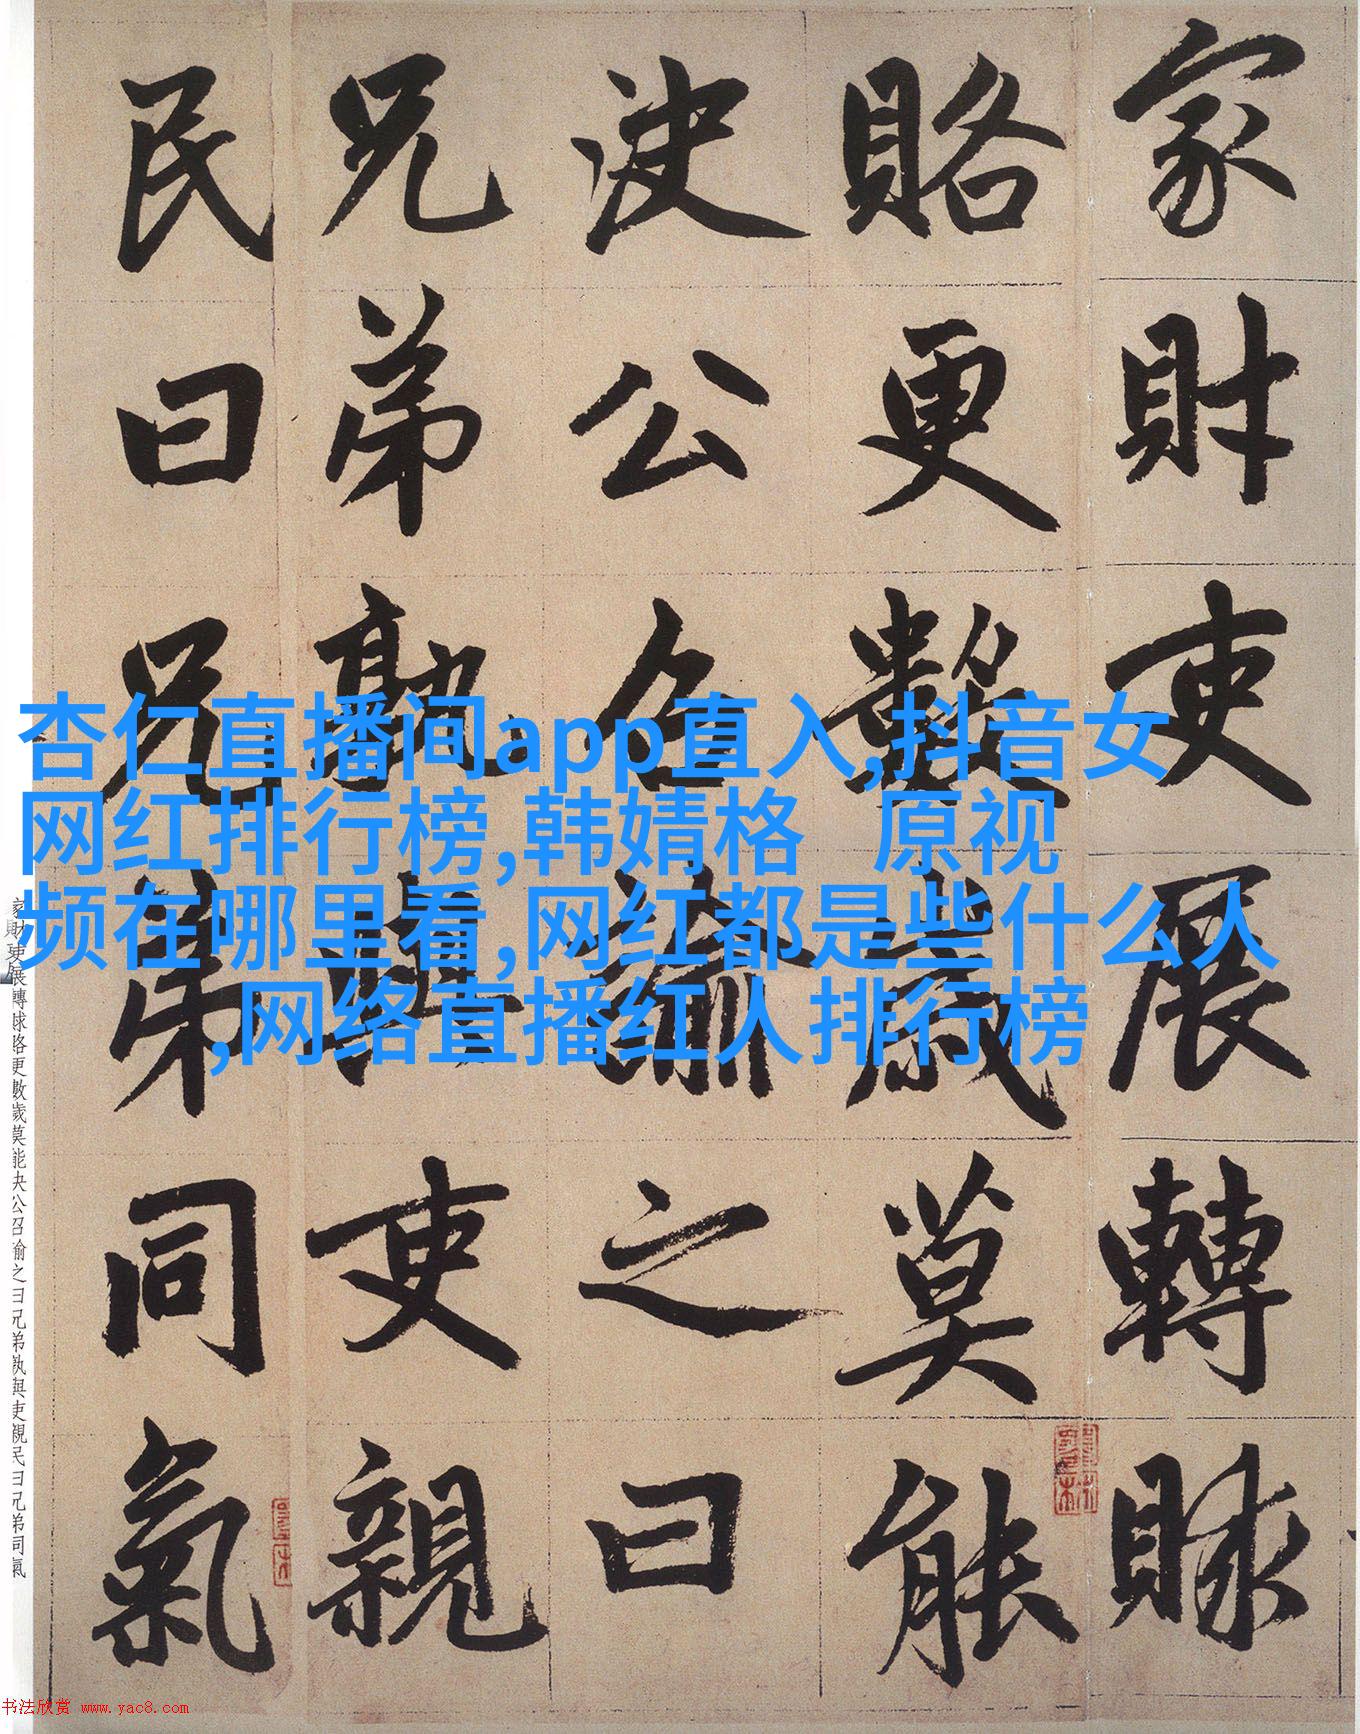 家財吏展轉賕
賂更數歲莫能
決公召諭之曰
兄弟孰與吏親
民曰兄弟同氣
杏仁直播间app直入,抖音女
网红排行榜,韩婧格 原视
频在哪里看,网红都是些什么人
,网络直播红人排行榜
家財吏展轉賕賂更數歲莫能決公召諭之曰兄弟孰與吏親民曰兄弟同氣
书法欣赏 www.yac8.com